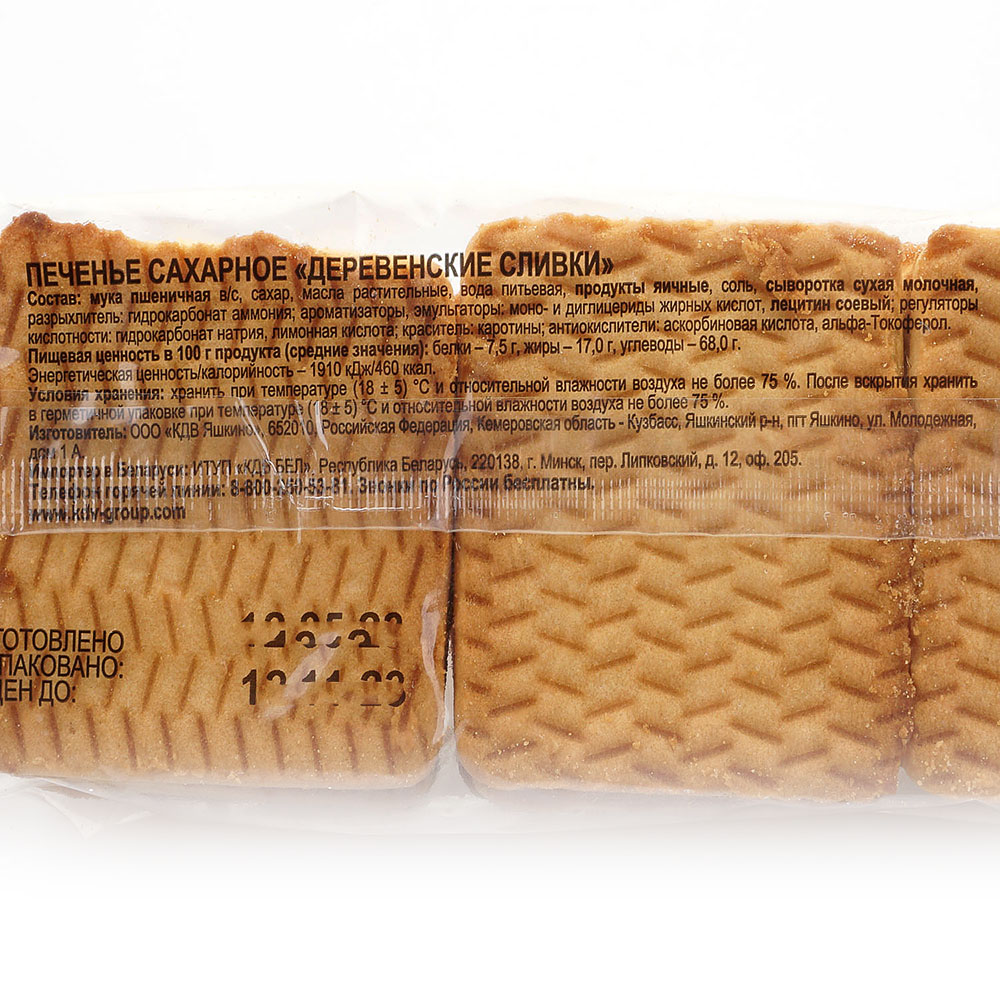 ПЕЧЕНЬЕ САХАРНОЕ «ДЕРЕВЕНСКИЕ СЛИВКИ»
Состав: мука пшеничная в/с, сахар, масла растительные, вода питьевая, продукты яичные, соль, сыворотка сухая молочная,
разрыхлитель: гидрокарбонат аммония; ароматизаторы, эмульгаторы: моно- и диглицериды жирных кислот, лецитин соевый; регуляторы
кислотности: гидрокарбонат натрия, лимонная кислота; краситель: каротины; антиокислители: аскорбиновая кислота, альфа-Токоферол.
Пищевая ценность в 100 г продукта (средние значения): белки – 7,5 г, жиры – 17,0 г, углеводы – 68,0 г.
Энергетическая ценность/калорийность – 1910 кДж/460 ккал.
Условия хранения: хранить при температуре (18 ± 5) °С и относительной влажности воздуха не более 75 %. После вскрытия хранить
в герметичной упаковке при температуре (18 ± 5) °С и относительной влажности воздуха не более 75 %.
Изготовитель: ООО «КДВ Яшкино», 652010, Российская Федерация, Кемеровская область - Кузбасс, Яшкинский р-н, пгт Яшкино, ул. Молодежная,
дом 1 А.
Импортер в Беларуси: ИТУП «КДВ БЕЛ», Республика Беларусь, 220138, г. Минск, пер. Липковский, д. 12, оф. 205.
Телефон горячей линии: Звонки по России бесплатны.
www.kdv-group.com
ГОТОВЛЕНО
ПАКОВАНО:
ДЕН ДО: